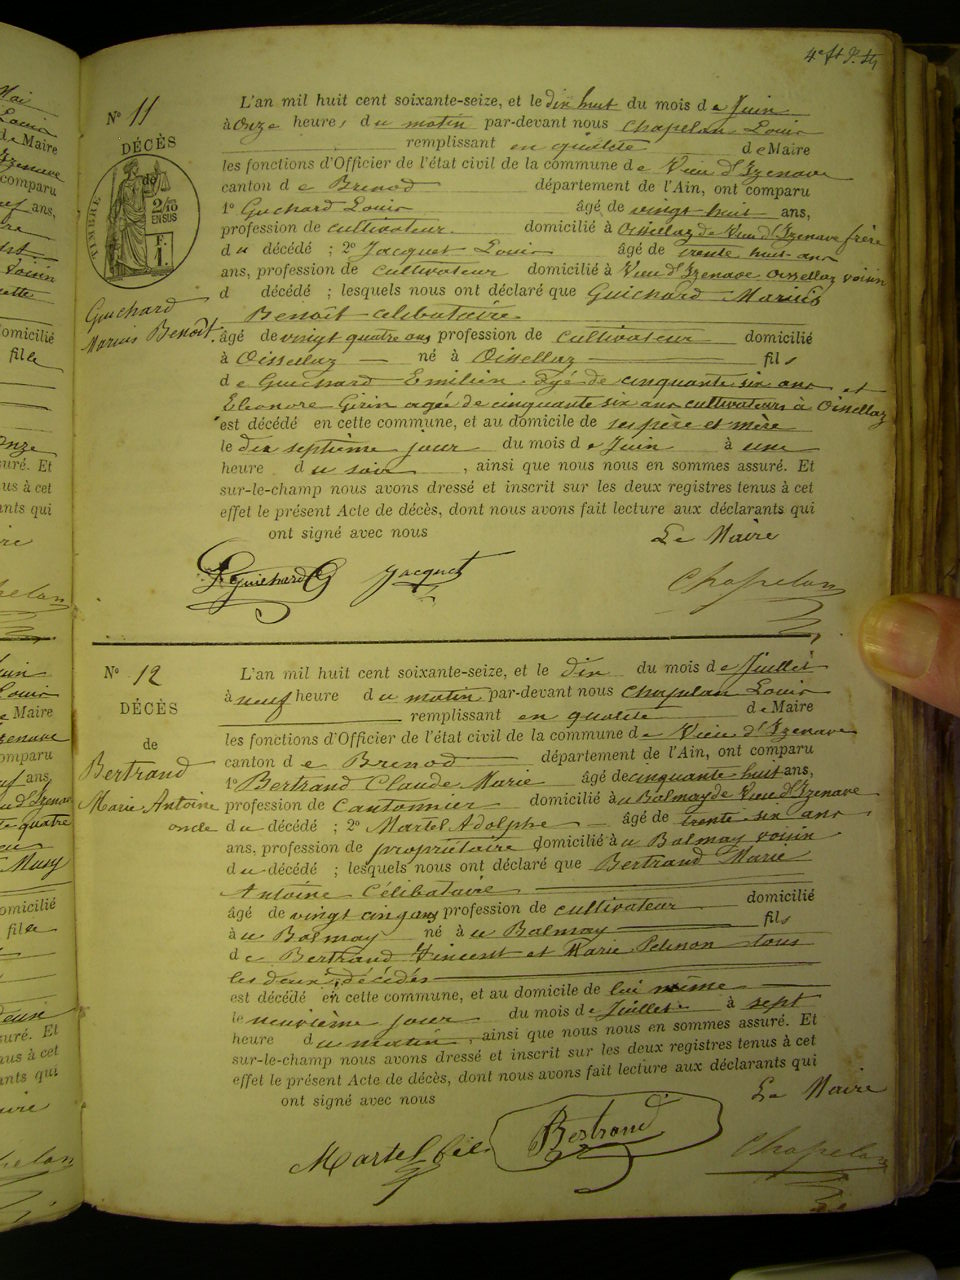 N° 11
DÉCÈS
de
TIMBRE
2/10
EN SUS
F.
1.
Guichard
Marius Benoît.
L'an mil huit cent soixante-seize, et le dix huit du mois de Juin
à onze heures du matin par-devant nous Chapelan Louis
remplissant en qualité de Maire
les fonctions d'Officier de l'état civil de la commune de Vieu d'Izenave
canton de Brenod département de l'Ain, ont comparu
1° Guchard Louis âgé de vingt huit ans,
profession de cultivateur domicilié à Oisellaz de Vieu d'Izenave frère
du décédé ; 2° Jacquet Louis âgé de trente huit ans
ans, profession de cultivateur domicilié à Vieu d'Izenave Oissellaz voisin
d décédé ; lesquels nous ont déclaré que Guichard Marius
Benoît célibataire
âgé de vingt quatre ans profession de cultivateur domicilié
à Oissellaz né à Oissellaz fils
de Guichard Emilien Agé de cinquante six ans et
Eléonore Girin agée de cinquante six ans cultivateurs à Oissellaz
est décédé en cette commune, et au domicile de ses père et mère
le dix septième jour du mois de Juin à une
heure du soir , ainsi que nous nous en sommes assuré. Et
sur-le-champ nous avons dressé et inscrit sur les deux registres tenus à cet
effet le présent Acte de décès, dont nous avons fait lecture aux déclarants qui
ont signé avec nous
Le Maire
Guichard Jacquet Chapelan
N° 12
DÉCÈS
de
Bertrand
Marie Antoine
L'an mil huit cent soixante-seize, et le dix du mois de Juillet
à neuf heure du matin par-devant nous Chapelan Louis
remplissant en qualité de Maire
les fonctions d'Officier de l'état civil de la commune de Vieu d'Izenave
canton de Brenod département de l'Ain, ont comparu
1° Bertrand Claude Marie âgé de cinquante huit ans,
profession de Cantonnier domicilié à u Balmay de Vieu d'Izenave
oncle du décédé ; 2° Martel Adolphe âgé de trente six ans
ans, profession de propriétaire domicilié à u Balmay voisin
du décédé ; lesquels nous ont déclaré que Bertrand Marie
Antoine Célibataire
âgé de vingt cinq ans profession de cultivateur domicilié
à u Balmay né à u Balmay fils
de Bertrand Vincent et Marie tous
les deux décédés
est décédé en cette commune, et au domicile de lui même
le neuvième jour du mois de Juillet à sept
heure du matin , ainsi que nous nous en sommes assuré. Et
sur-le-champ nous avons dressé et inscrit sur les deux registres tenus à cet
effet le présent Acte de décès, dont nous avons fait lecture aux déclarants qui
ont signé avec nous
Le Maire
Martel fils Bertrand Chapelan